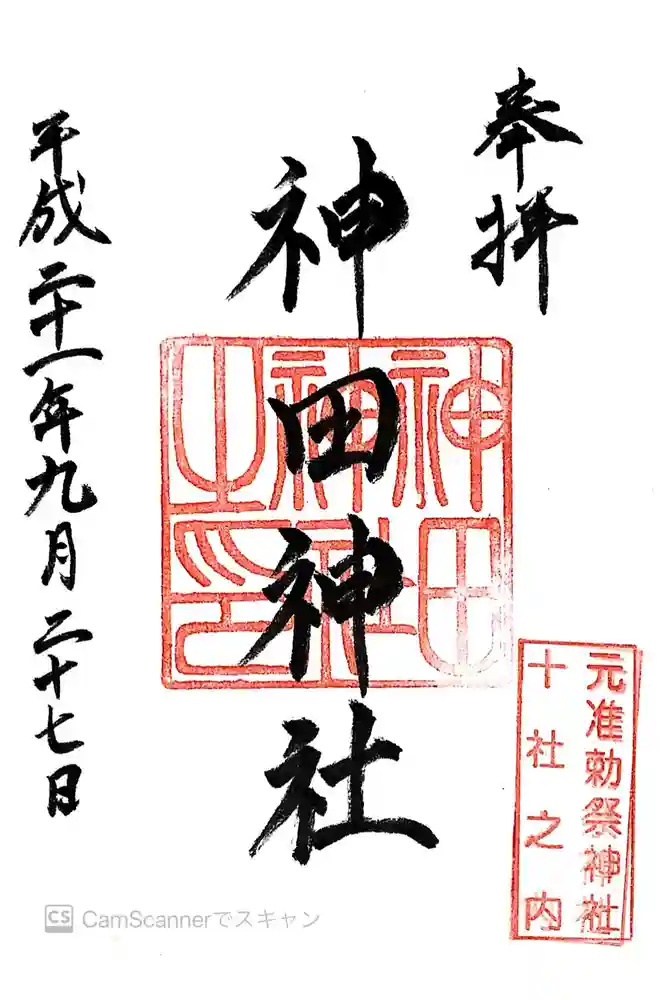 奉拝
神田神社
神田神社之印
平成二十一年九月二十七日
元准勅祭神社
十社之内
CS CamScannerでスキャン